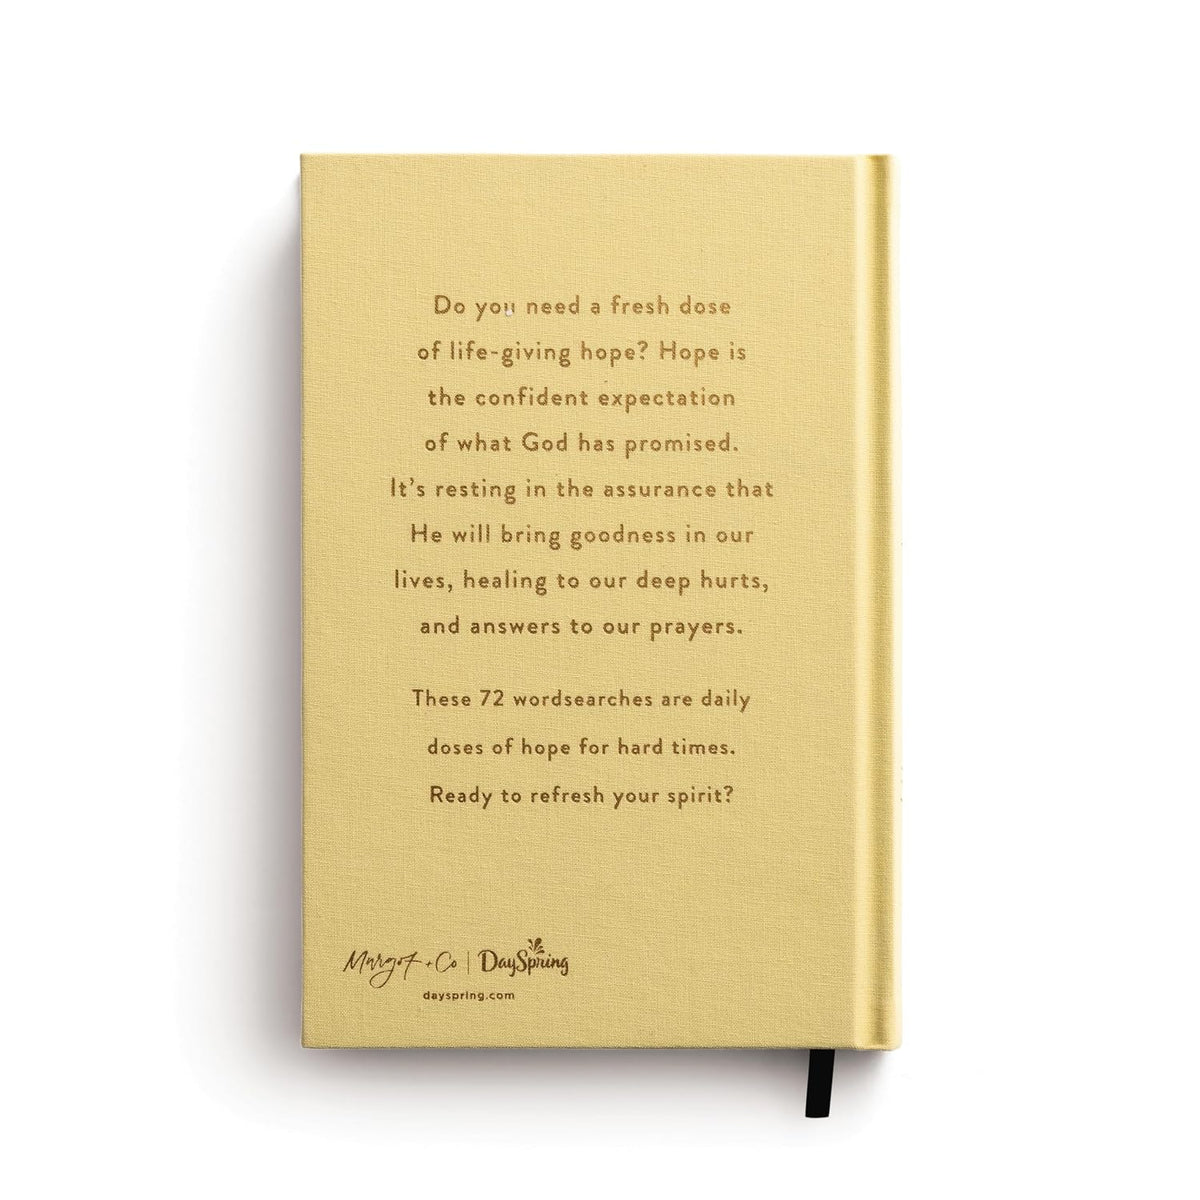 Do you need a fresh dose
of life-giving hope? Hope is
the confident expectation
of what God has promised.
It's resting in the assurance that
He will bring goodness in our
lives, healing to our deep hurts,
and answers to our prayers.
These 72 wordsearches are daily
doses of hope for hard times.
Ready to refresh your spirit?
Margot + Co | DaySpring
dayspring.com